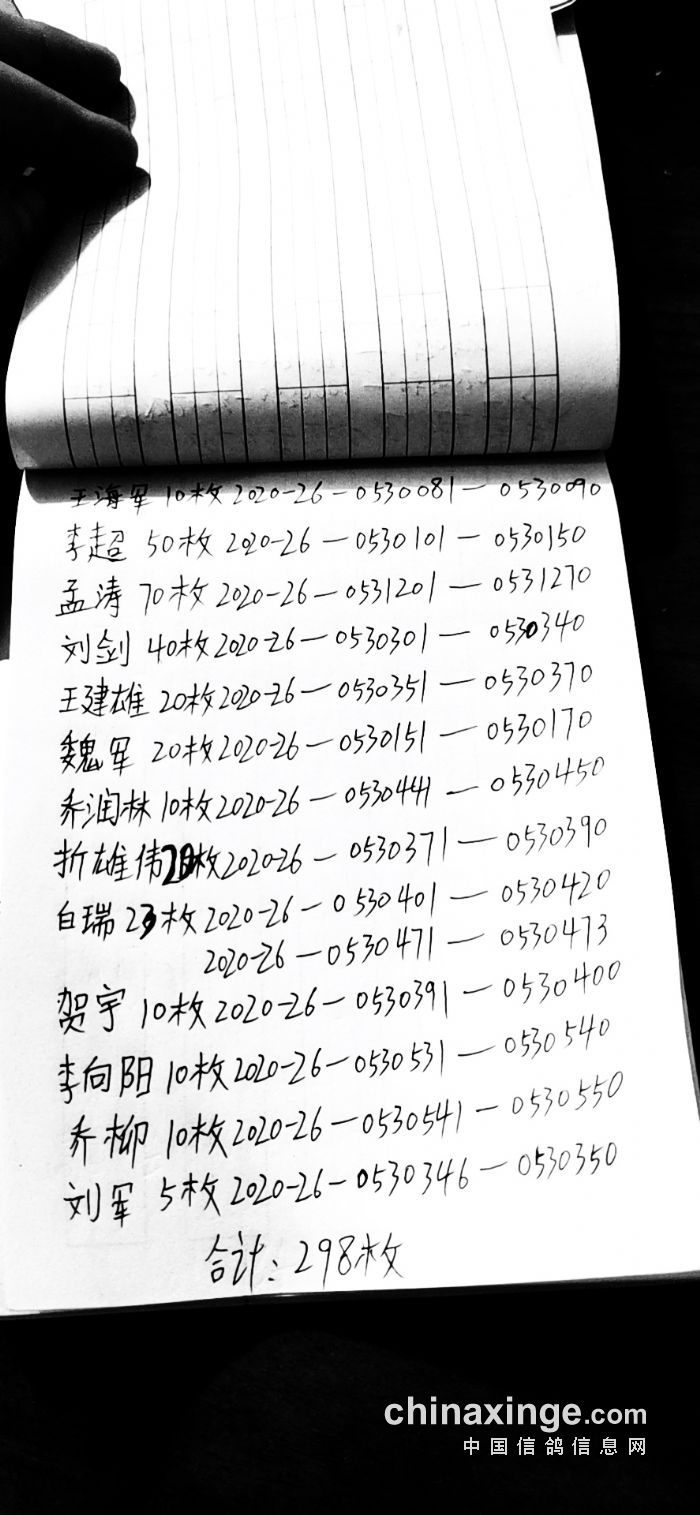 王海军 10枚 2020-26-0530081-0530090
李超 50枚 2020-26-0530101-0530150
孟涛 70枚 2020-26-0531201-0531270
刘剑 40枚 2020-26-0530301-0530340
王建雄 20枚 2020-26-0530351-0530370
魏军 20枚 2020-26-0530151-0530170
乔润林 10枚 2020-26-0530441-0530450
折雄伟 20枚 2020-26-0530371-0530390
白瑞 23枚 2020-26-0530401-0530420
2020-26-0530471-0530473
贺宇 10枚 2020-26-0530391-0530400
李向阳 10枚 2020-26-0530531-0530540
乔柳 10枚 2020-26-0530541-0530550
刘军 5枚 2020-26-0530346-0530350
合计：298枚
chinaxinge.com
中国信鸽信息网